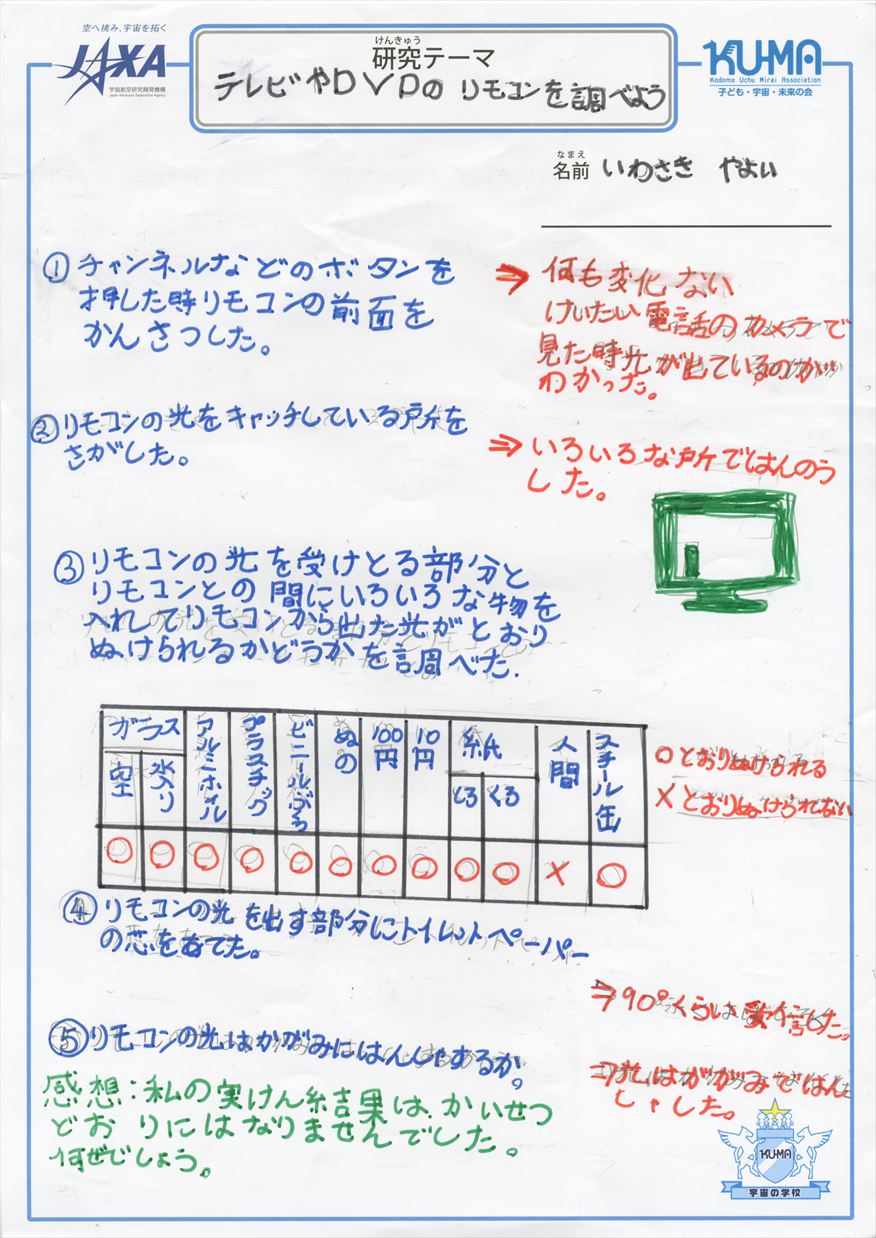 空へ挑み、宇宙を拓く
JAXA
宇宙航空研究開発機構
Japan Aerospace Exploration Agency
けんきゅう
研究テーマ
テレビやDVDのリモコンを調べよう
KU-MA
Kodomo Uchu Mirai Association
子ども・宇宙・未来の会
なまえ
名前 いわさき やよい
①チャンネルなどのボタンを
押した時リモコンの前面を
かんさつした。
⇒何も変化ない
けいたい電話のカメラで
見た時光が出ているのが
わかった。
②リモコンの光をキャッチしている所を
さがした。
⇒いろいろな所ではんのう
した。
③リモコンの光を受けとる部分と
リモコンとの間にいろいろな物を
入れてリモコンから出た光がとおり
ぬけられるかどうかを調べた.
ガラス アルミホイル プラスチック ビニールぶくろ ぬの 100円 10円 紙 人間 スチール缶
空 水入り しろ くろ
○ ○ ○ ○ ○ ○ ○ ○ ○ ○ × ○
○とおりぬけられる
×とおりぬけられない
④リモコンの光を出す部分にトイレットペーパー
の芯をあてた。
⇒90°くらいは受信した。
⑤リモコンの光はかがみにはんしゃするか。
⇒光はかがみではん
しゃした。
感想:私の実けん結果は、かいせつ
どおりにはなりませんでした。
何ぜでしょう。
KU-MA
宇宙の学校